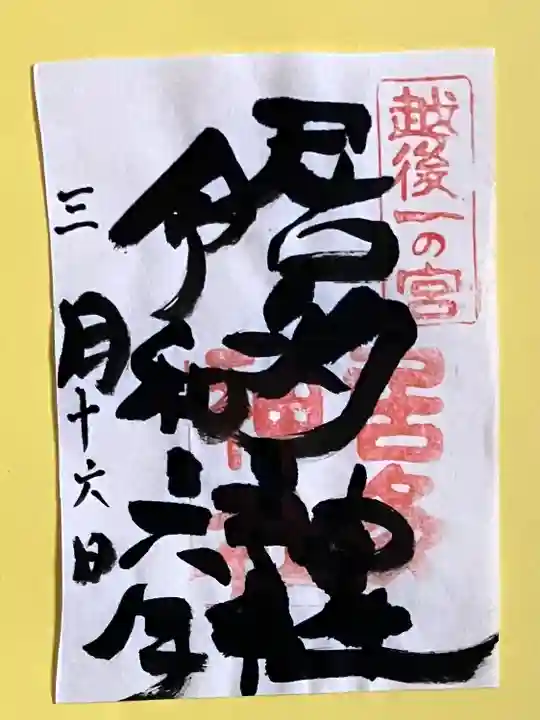 越後一の宮
居多神社
居多神社
令和六年
三月十六日